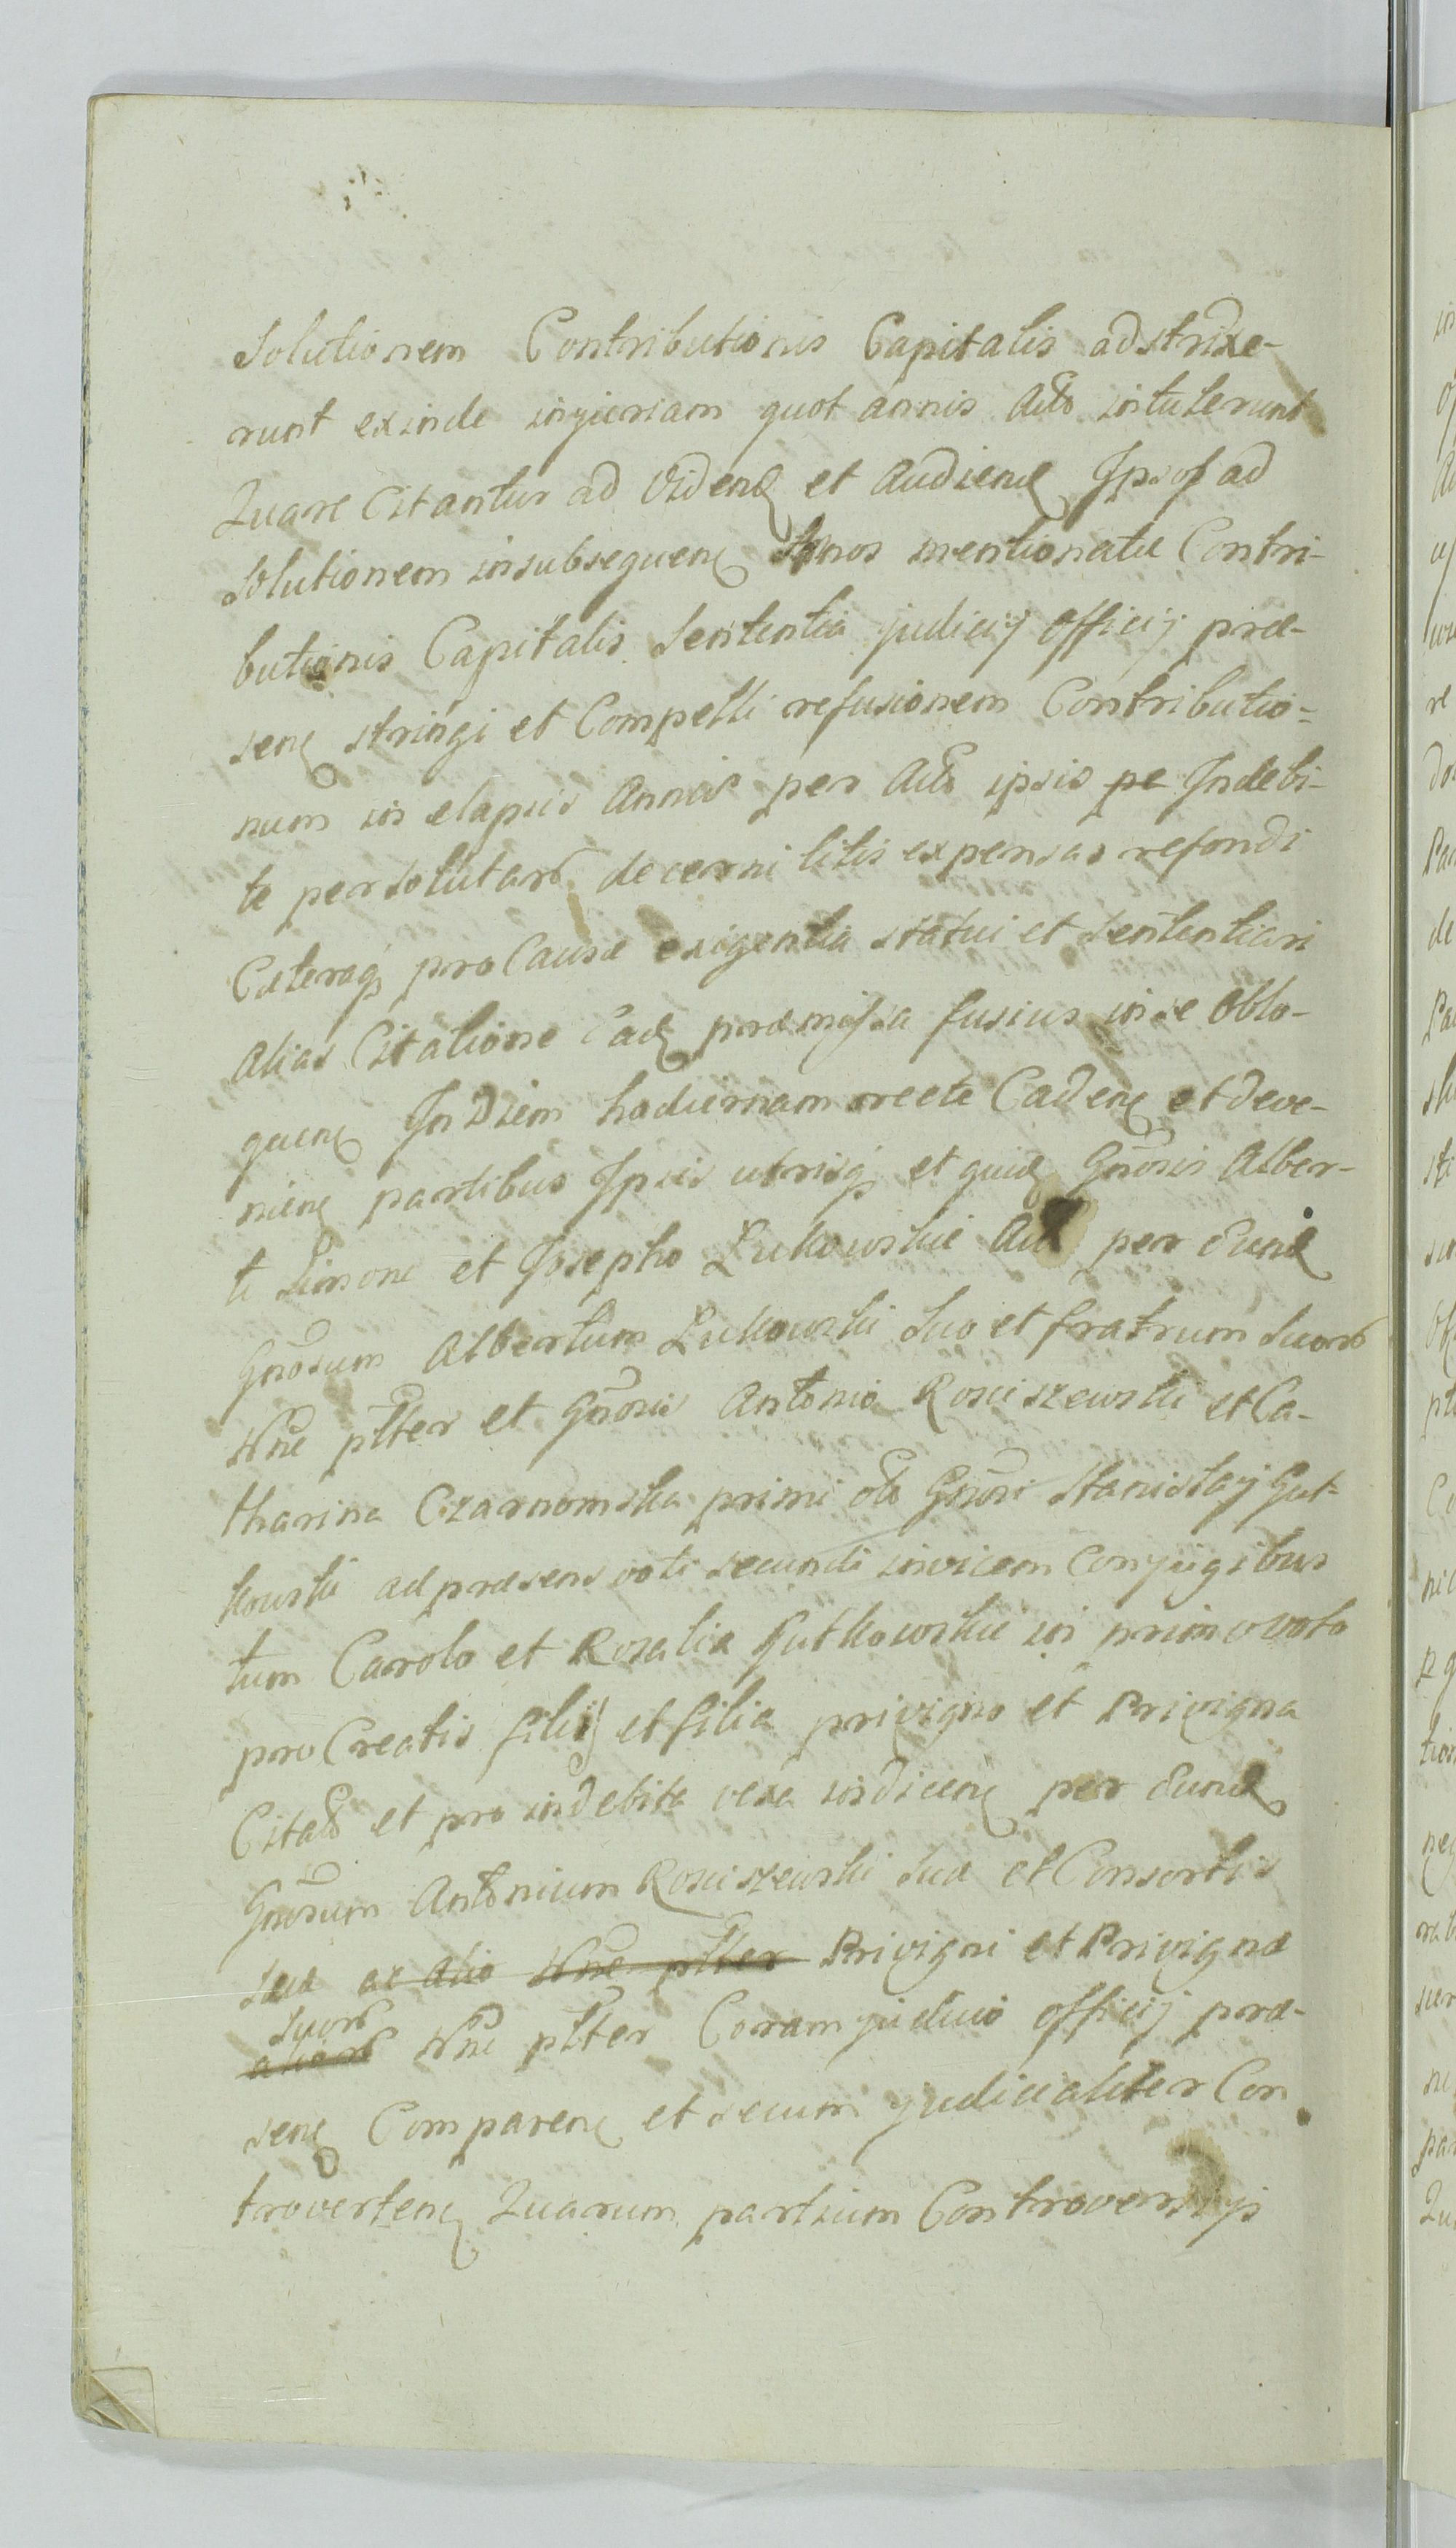 Solutionem Contributionis Capitalis adstrixe-
runt exinde injuriam quot annis Actb intulerunt
Quare Citantur ad Videnđ et Audienđ Ipsos ad
Solutionem in subsequenę Annos mentionatæ Contri-
butionis Capitalis Sententia judicij Officij præ-
senę stringi et Compelli refusionem Contributio-
num in elapsis Annis per Actb ipsis pe Indebi-
te persolutarb decerni litis expensas refondi
Cæteraqȝ pro Causæ exigentia statui et sententiari
Alias Citatione Eadę præmissa fusius in se oblo-
quenę In Diem hodiernam recte Cadenę et deve-
nienę partibus Ipsis utrisqȝ et quidę Gnōsis Alber-
ti Simone et Josepho Zukowskie Act per Eundę
Gnōsum Albertum Zukowski Suo et fratrum Suorb
Nnē pltter et Gnōsis Antonio Rosciszewski et Ca-
tharina Czarnomska primi olb Gnōsi Stanislaj Gut-
kowski ad præsens voti secundi invicem Conjugibus
tum Carolo et Rozalia Gutkowskie in primo voto
pro Creatis filij et filia privigno et Privigna
Citatb et pro indebita vexa indicenę per Eundę
Gnōsum Antonium Rosciszewski Suo et Consortis
Suæ ac alio Nnē pltter Privigni et Privignæ
Suorb
aliorb Nnē pltter Coram judicio officij præ-
senę Comparenę et secum judicialiter Con
trovertenę Quarum partium Controversijs